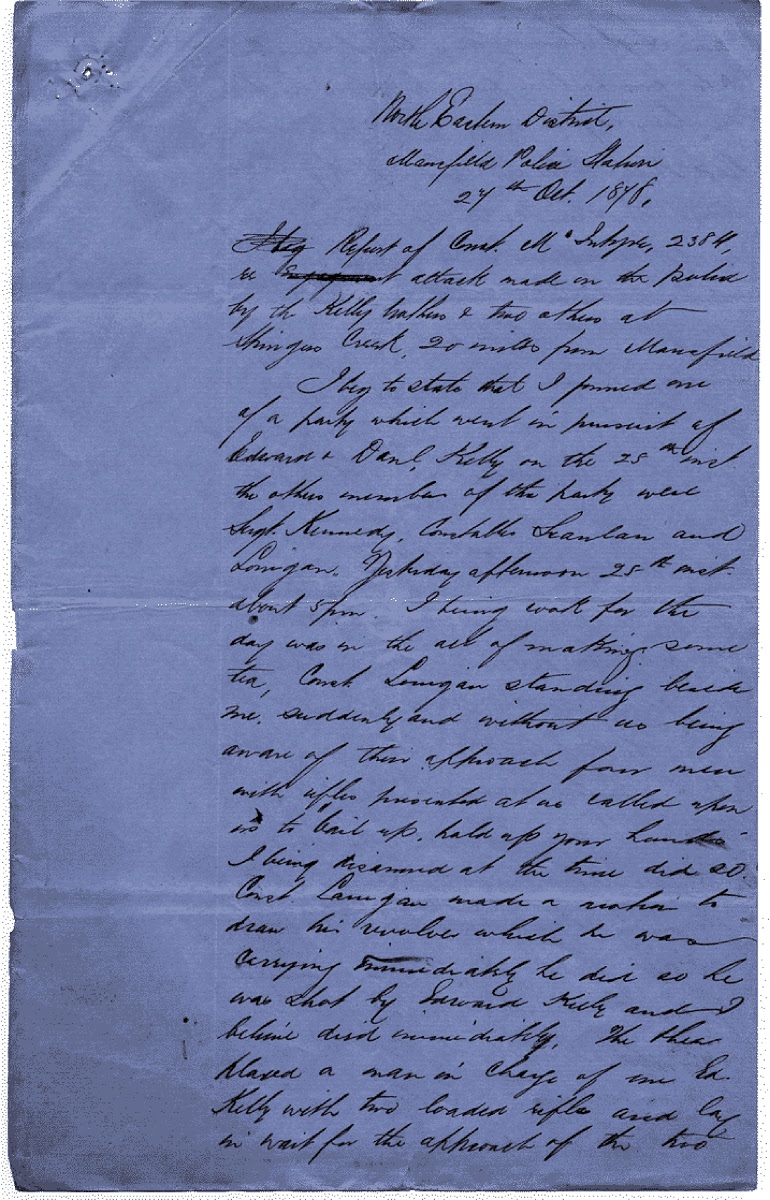 North Eastern District,
Mansfield Police Station
27th Oct. 1878.
I beg Report of Const. McIntyre, 2384,
re attack made on the Police
by the Kelly brothers & two others at
Stringers Creek, 20 miles from Mansfield
I beg to state that I formed one
of a party which went in pursuit of
Edward & Danl. Kelly on the 25th inst.
the other members of the party were
Sergt. Kennedy, Constables Scanlan and
Lonigan. Yesterday afternoon 25th inst.
about 5pm. I being cook for the
day was in the act of making some
tea, Const Lonigan standing beside
me. suddenly and without us being
aware of their approach four men
with rifles presented at us called upon
us to bail up, hold up your hands
I being disarmed at the time did so.
Const Lonigan made a motion to
draw his revolver which he was
carrying immediately he did so he
was shot by Edward Kelly and I
believe died immediately. He then
placed a man in charge of me Ed.
Kelly with two loaded rifles and lay
in wait for the approach of the two